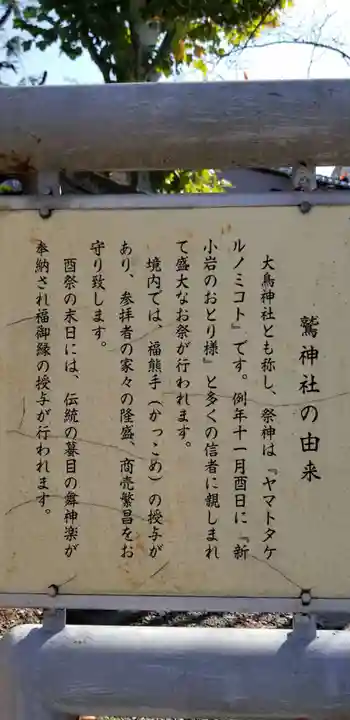 鷲神社の由来
大鳥神社とも称し、祭神は『ヤマトタケ
ルノミコト』です。例年十一月酉日に『新
小岩のおとり様』と多くの信者に親しまれ
て盛大なお祭が行われます。
境内では、福熊手（かっこめ）の授与が
あり、参拝者の家々の隆盛、商売繁昌をお
守り致します。
酉祭の末日には、伝統の暮目の舞神楽が
奉納され福御縁の授与が行われます。